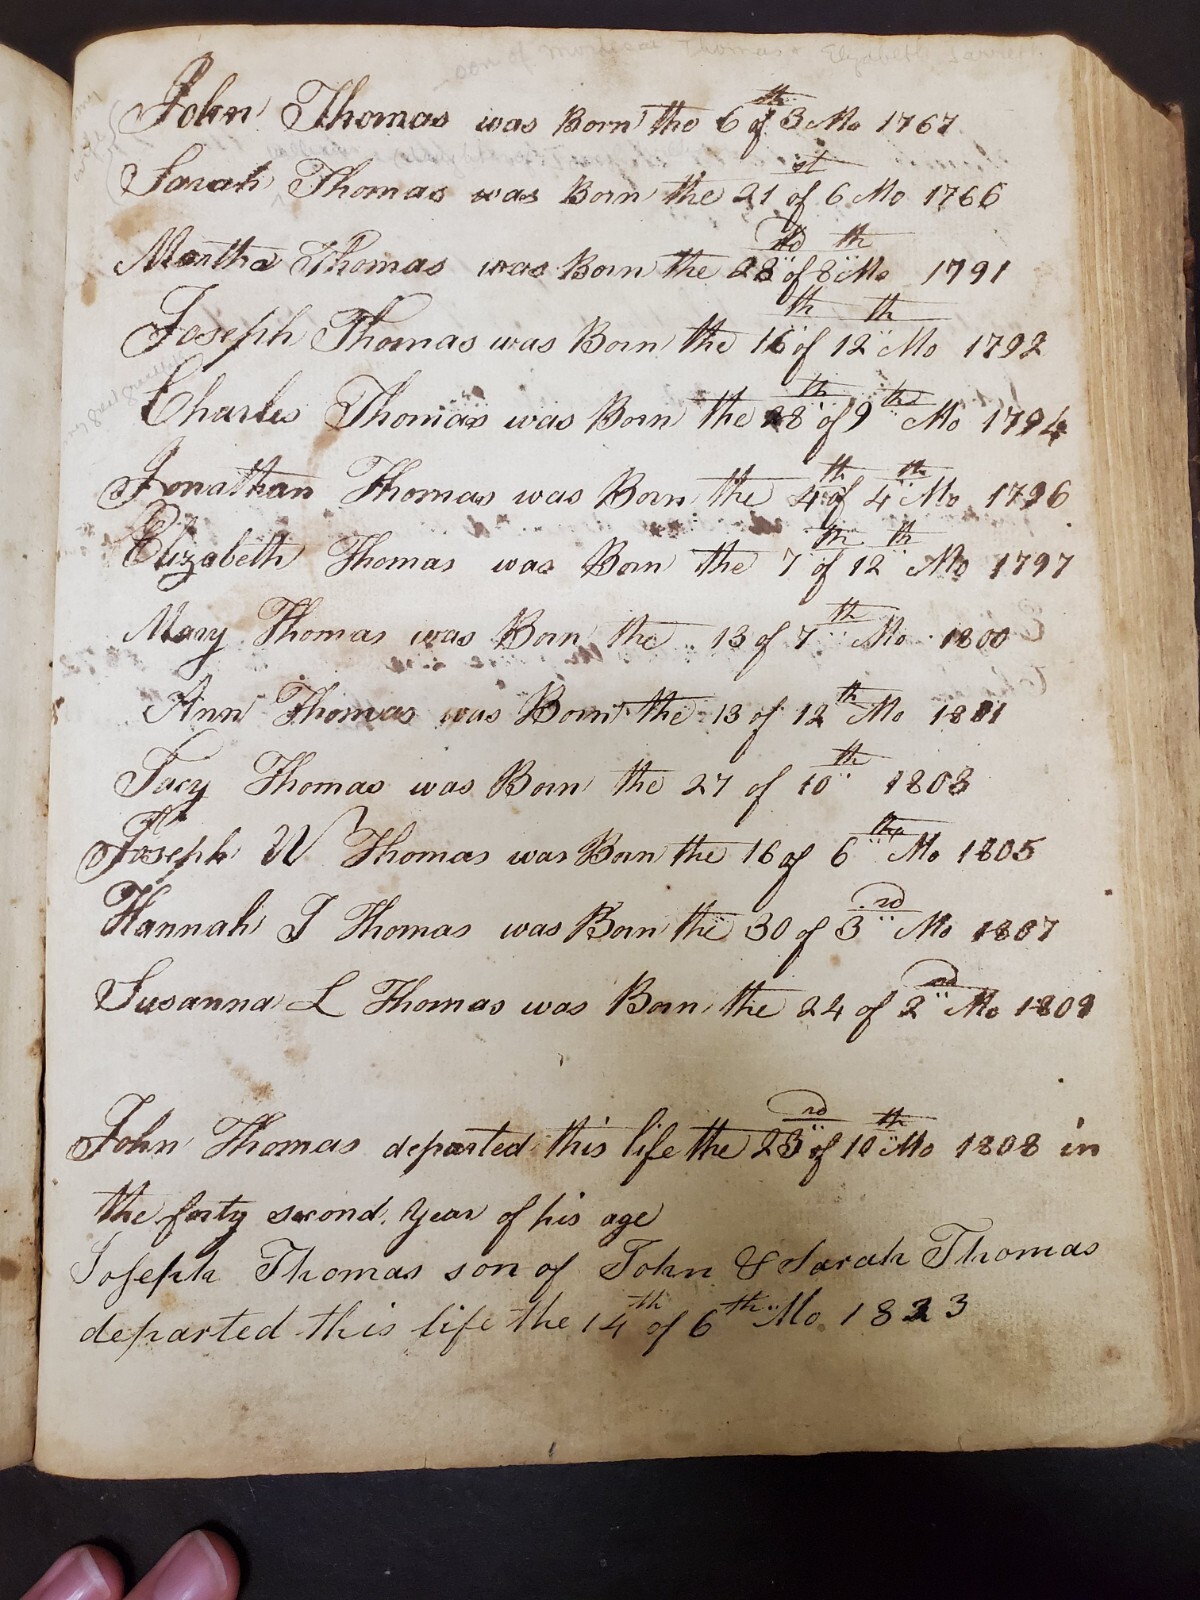 son of Mordecai Thomas & Elizabeth
John Thomas was Born the 6th of 3 Mo 1767
Sarah Thomas was Born the 21st of 6 Mo 1766
Martha Thomas was Born the 28 of 8th Mo 1791
Joseph Thomas was Born the 16th of 12th Mo 1792
Charles Thomas was Born the 28th of 9th Mo 1794
Jonathan Thomas was Born the 4th of 4th Mo 1796
Elizabeth Thomas was Born the 7th of 12th Mo 1797
Mary Thomas was Born the 13 of 7th Mo 1800
Ann Thomas was Born the 13 of 12th Mo 1801
Tacy Thomas was Born the 27 of 10th 1803
Joseph W Thomas was Born the 16 of 6th Mo 1805
Hannah J Thomas was Born the 30 of 3rd Mo 1807
Susanna L Thomas was Born the 24 of 2nd Mo 1809
John Thomas departed this life the 23rd of 10th Mo 1808 in
the forty second year of his age
Joseph Thomas son of John & Sarah Thomas
departed this life the 14th of 6th Mo 1823